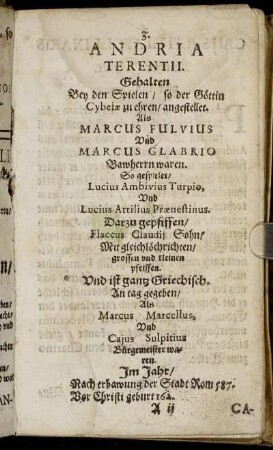 3.
ANDRIA
TERENTII.
Gehalten
Bey den Spielen / so der Göttin
Cybelæ zu ehren / angestellet.
Als
MARCUS FULVIUS
Vnd
MARCUS GLABRIO
Bawherrn waren.
So gespielet /
Lucius Ambivius Turpio,
Vnd
Lucius Attilius Prænestinus.
Darzu gepfiffen /
Flaccus Claudij Sohn /
Mit gleichlöchrichten /
grossen und kleinen
pfeiffen.
Vnd ist gantz Griechisch.
An tag gegeben /
Als
Marcus Marcellus,
Vnd
Cajus Sulpitius
Bürgemeister wa-
ren.
Im Jahr /
Nach erbawung der Stadt Rom 587.
Vor Christi geburt 164.
A ij CA-